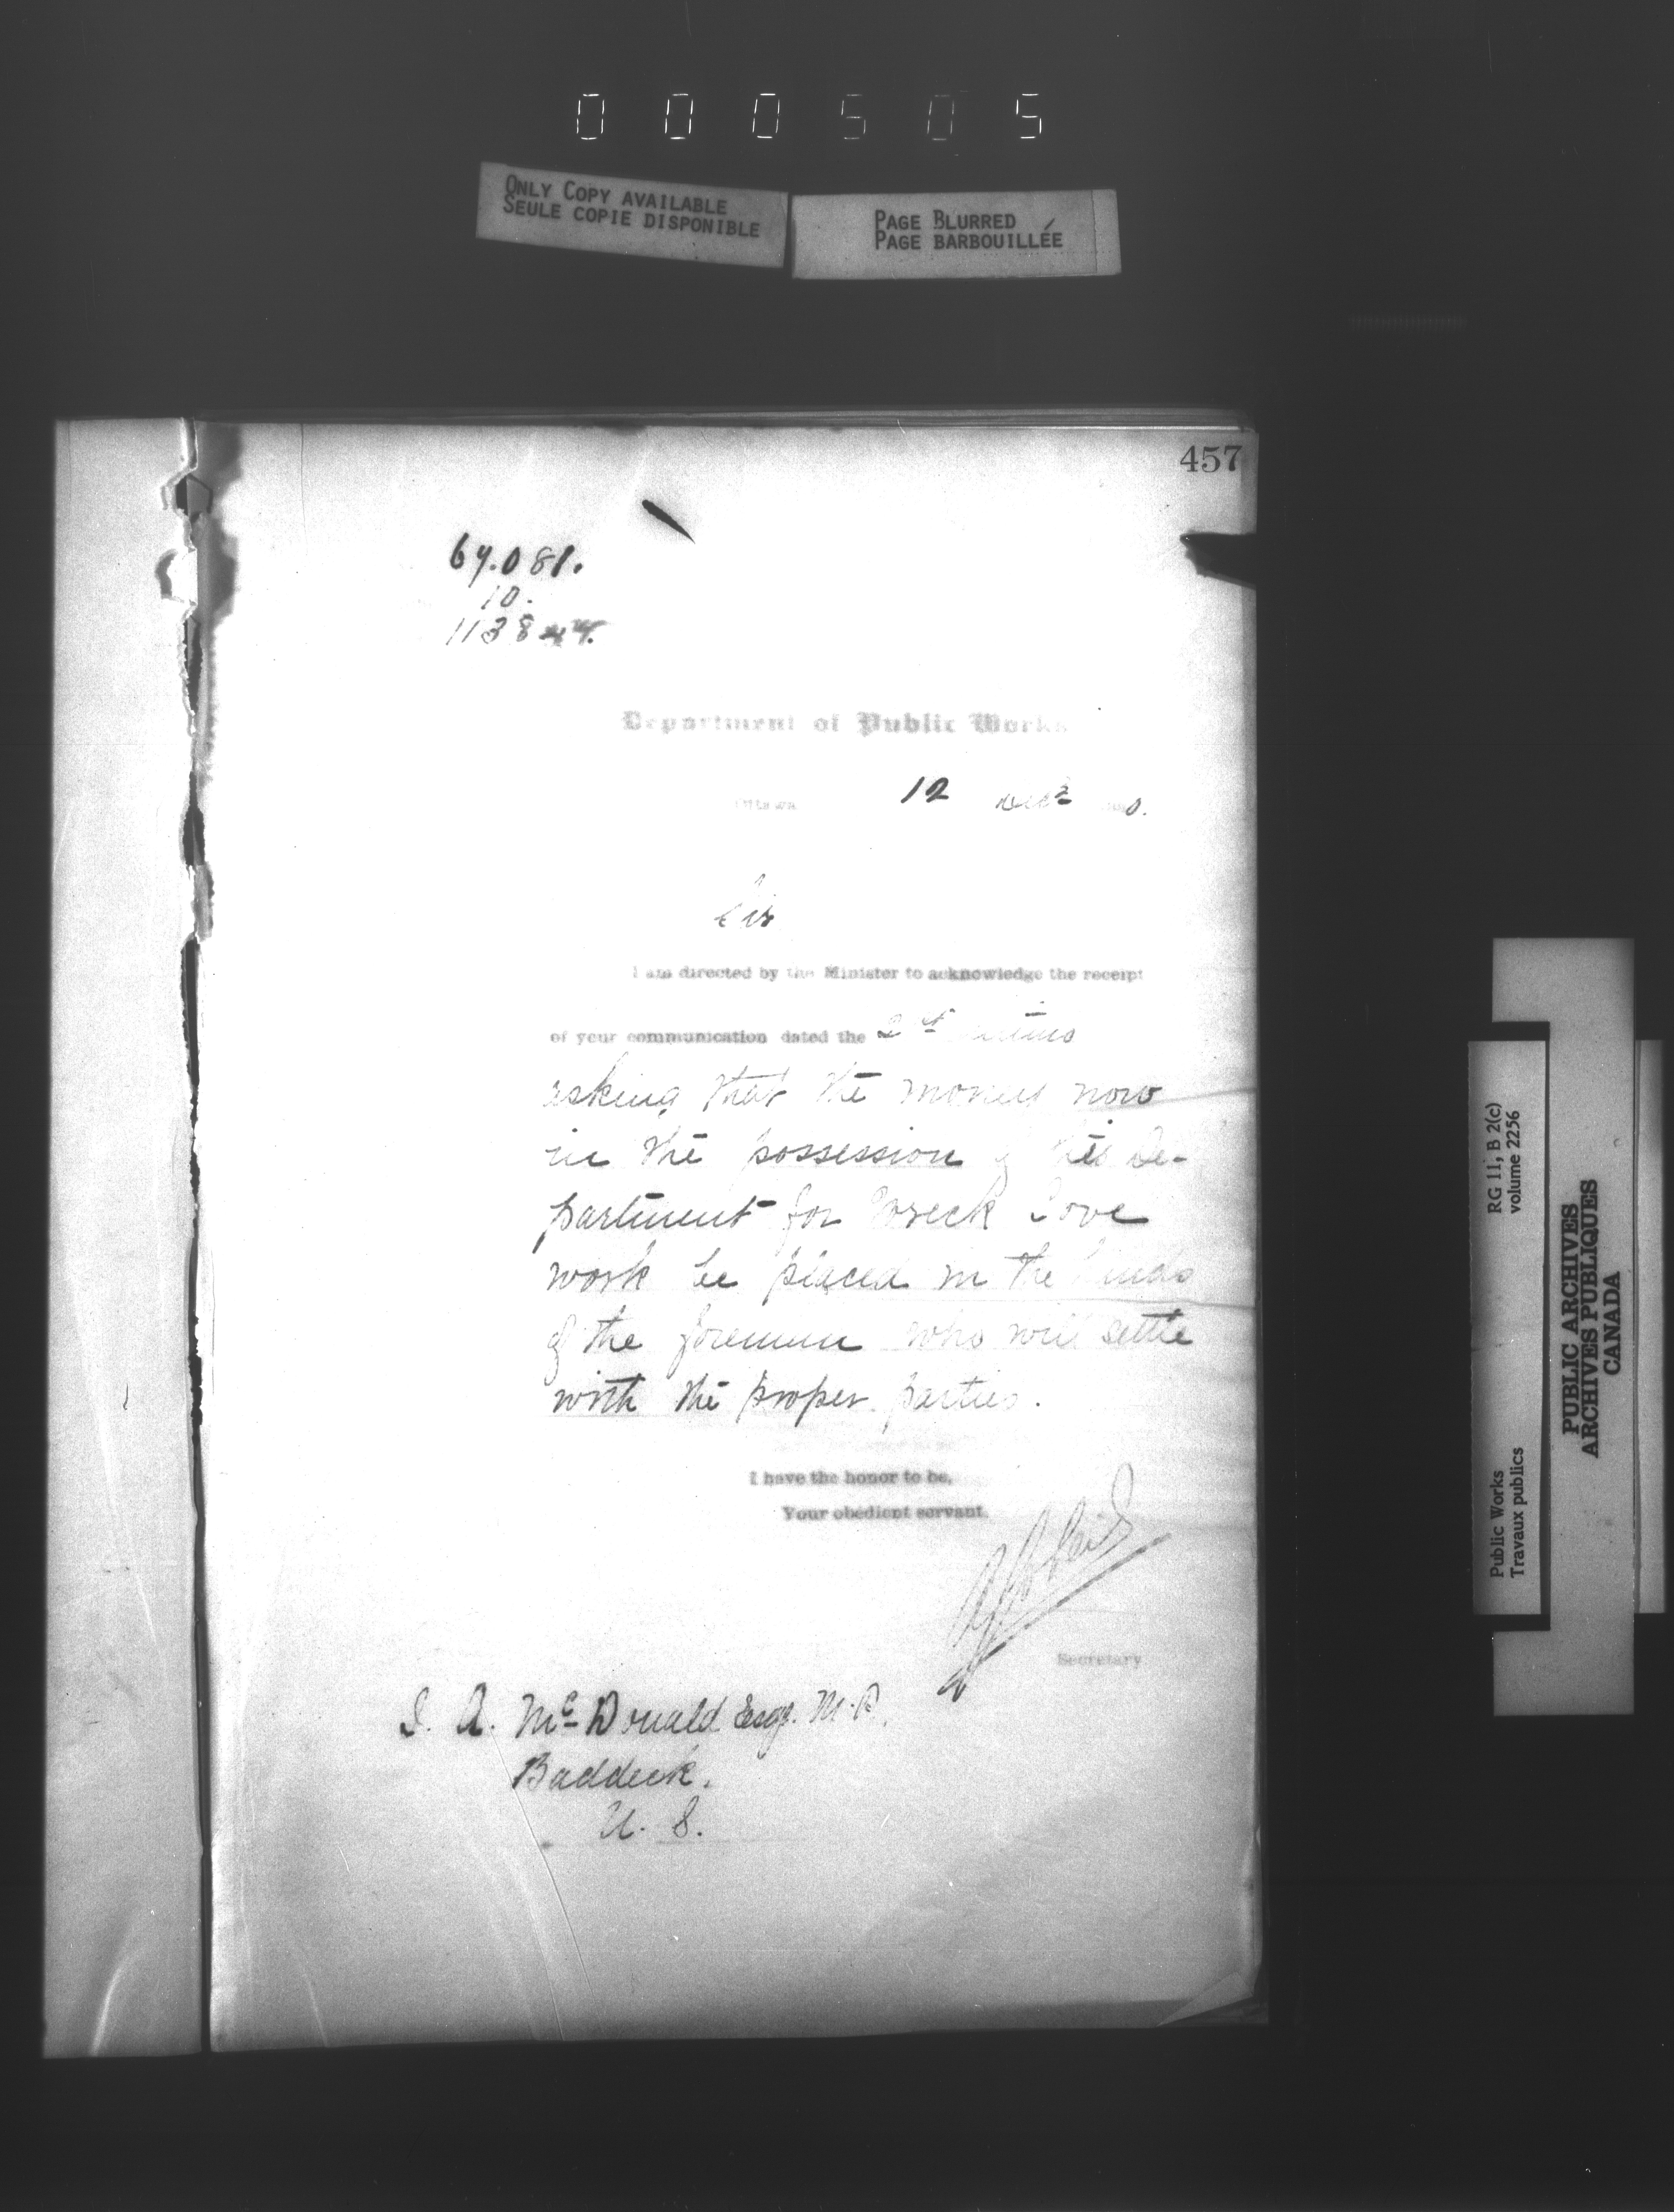 000505
ONLY COPY AVAILABLE
SEULE COPIE DISPONIBLE
PAGE BLURRED
PAGE BARBOUILLÉE
457
67.081.
10.
Department of Public Works
Ottawa 12 Decr 0.
Sir
I am directed by the Minister to acknowledge the receipt
of your communication dated the 2d
asking that the money now
in the possession of this De-
partment for Wreck Cove
work be placed in the hands
of the foreman who will settle
with the proper parties.
I have the honor to be,
Your obedient servant.
Secretary
A. McDonald Esqr. M.P.
Baddeck.
N. S.
RG 11, B 2(c)
volume 2256
Public Works
Travaux publics
PUBLIC ARCHIVES
ARCHIVES PUBLIQUES
CANADA